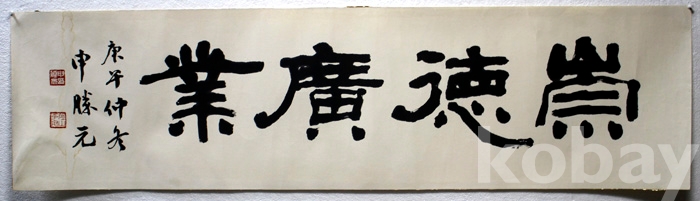 崇德廣業
庚午仲冬
申勝元
kobay